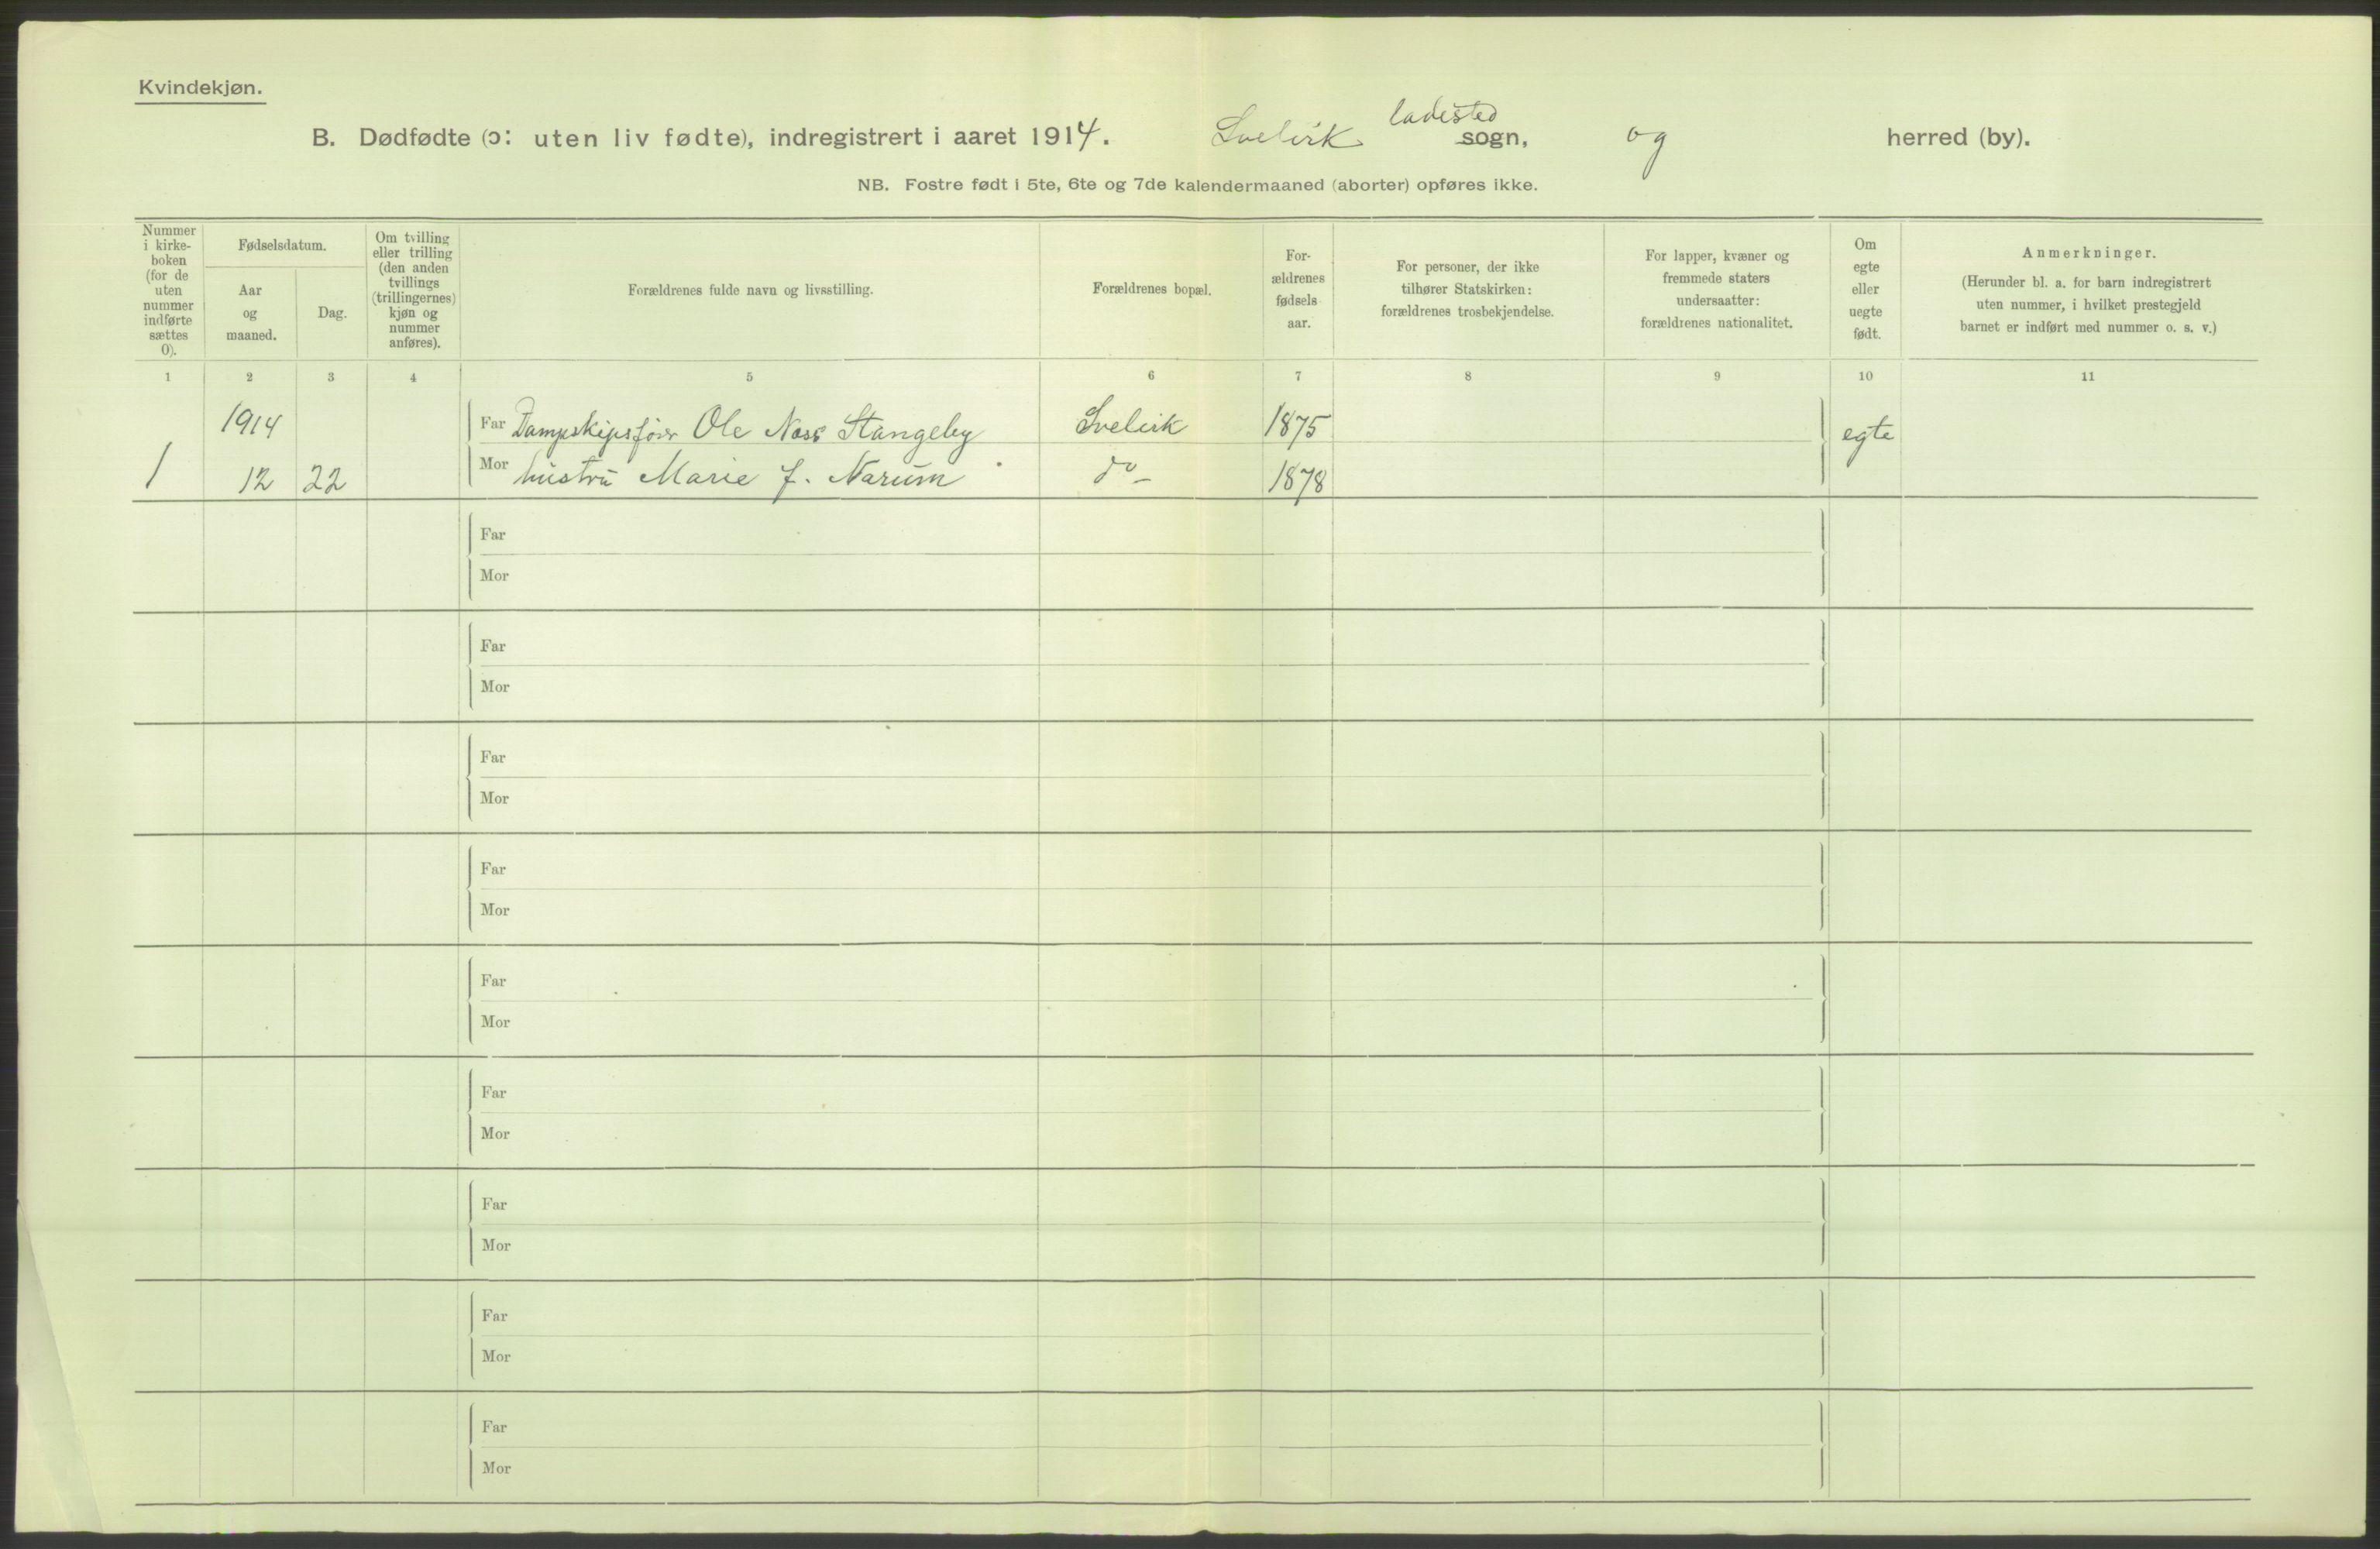 Kvindekjøn.
ladested
B. Dødfødte (ɔ: uten liv fødte), indregistrert i aaret 1914. Svelvik sogn, og herred (by).
NB. Fostre født i 5te, 6te og 7de kalendermaaned (aborter) opføres ikke.
Nummer
i kirke-
boken
(for de
uten
nummer
indførte
sættes
0).
Fødselsdatum.
Aar
og
maaned.
Dag.
Om tvilling
eller trilling
(den anden
tvillings
(trillingernes)
kjøn og
nummer
anføres).
Forældrenes fulde navn og livsstilling.
Forældrenes bopæl.
For-
ældrenes
fødsels
aar.
For personer, der ikke
tilhører Statskirken:
forældrenes trosbekjendelse.
For lapper, kvæner og
fremmede staters
undersaatter:
forældrenes nationalitet.
Om
egte
eller
uegte
født.
Anmerkninger.
(Herunder bl. a. for barn indregistrert
uten nummer, i hvilket prestegjeld
barnet er indført med nummer o. s. v.)
1 2 3 4 5 6 7 8 9 10 11
1914 Far Dampskipsfører Ole Næss Stangeby Svelvik 1875 egte
1 12 22 Mor hustru Marie f. Narum do 1878
Far
Mor
Far
Mor
Far
Mor
Far
Mor
Far
Mor
Far
Mor
Far
Mor
Far
Mor
Far
Mor